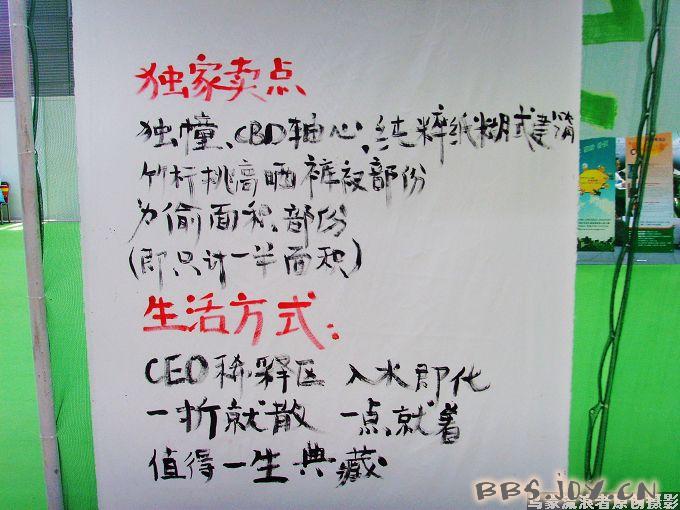 独家卖点
独幢、CBD轴心、纯粹纸糊式建筑
竹杆挑高晒裤衩部份
为偷面积部份
(即只计一半面积)
生活方式:
CEO稀释区 入水即化
一折就散 一点就着
值得一生典藏.
BBS.JOY.CN